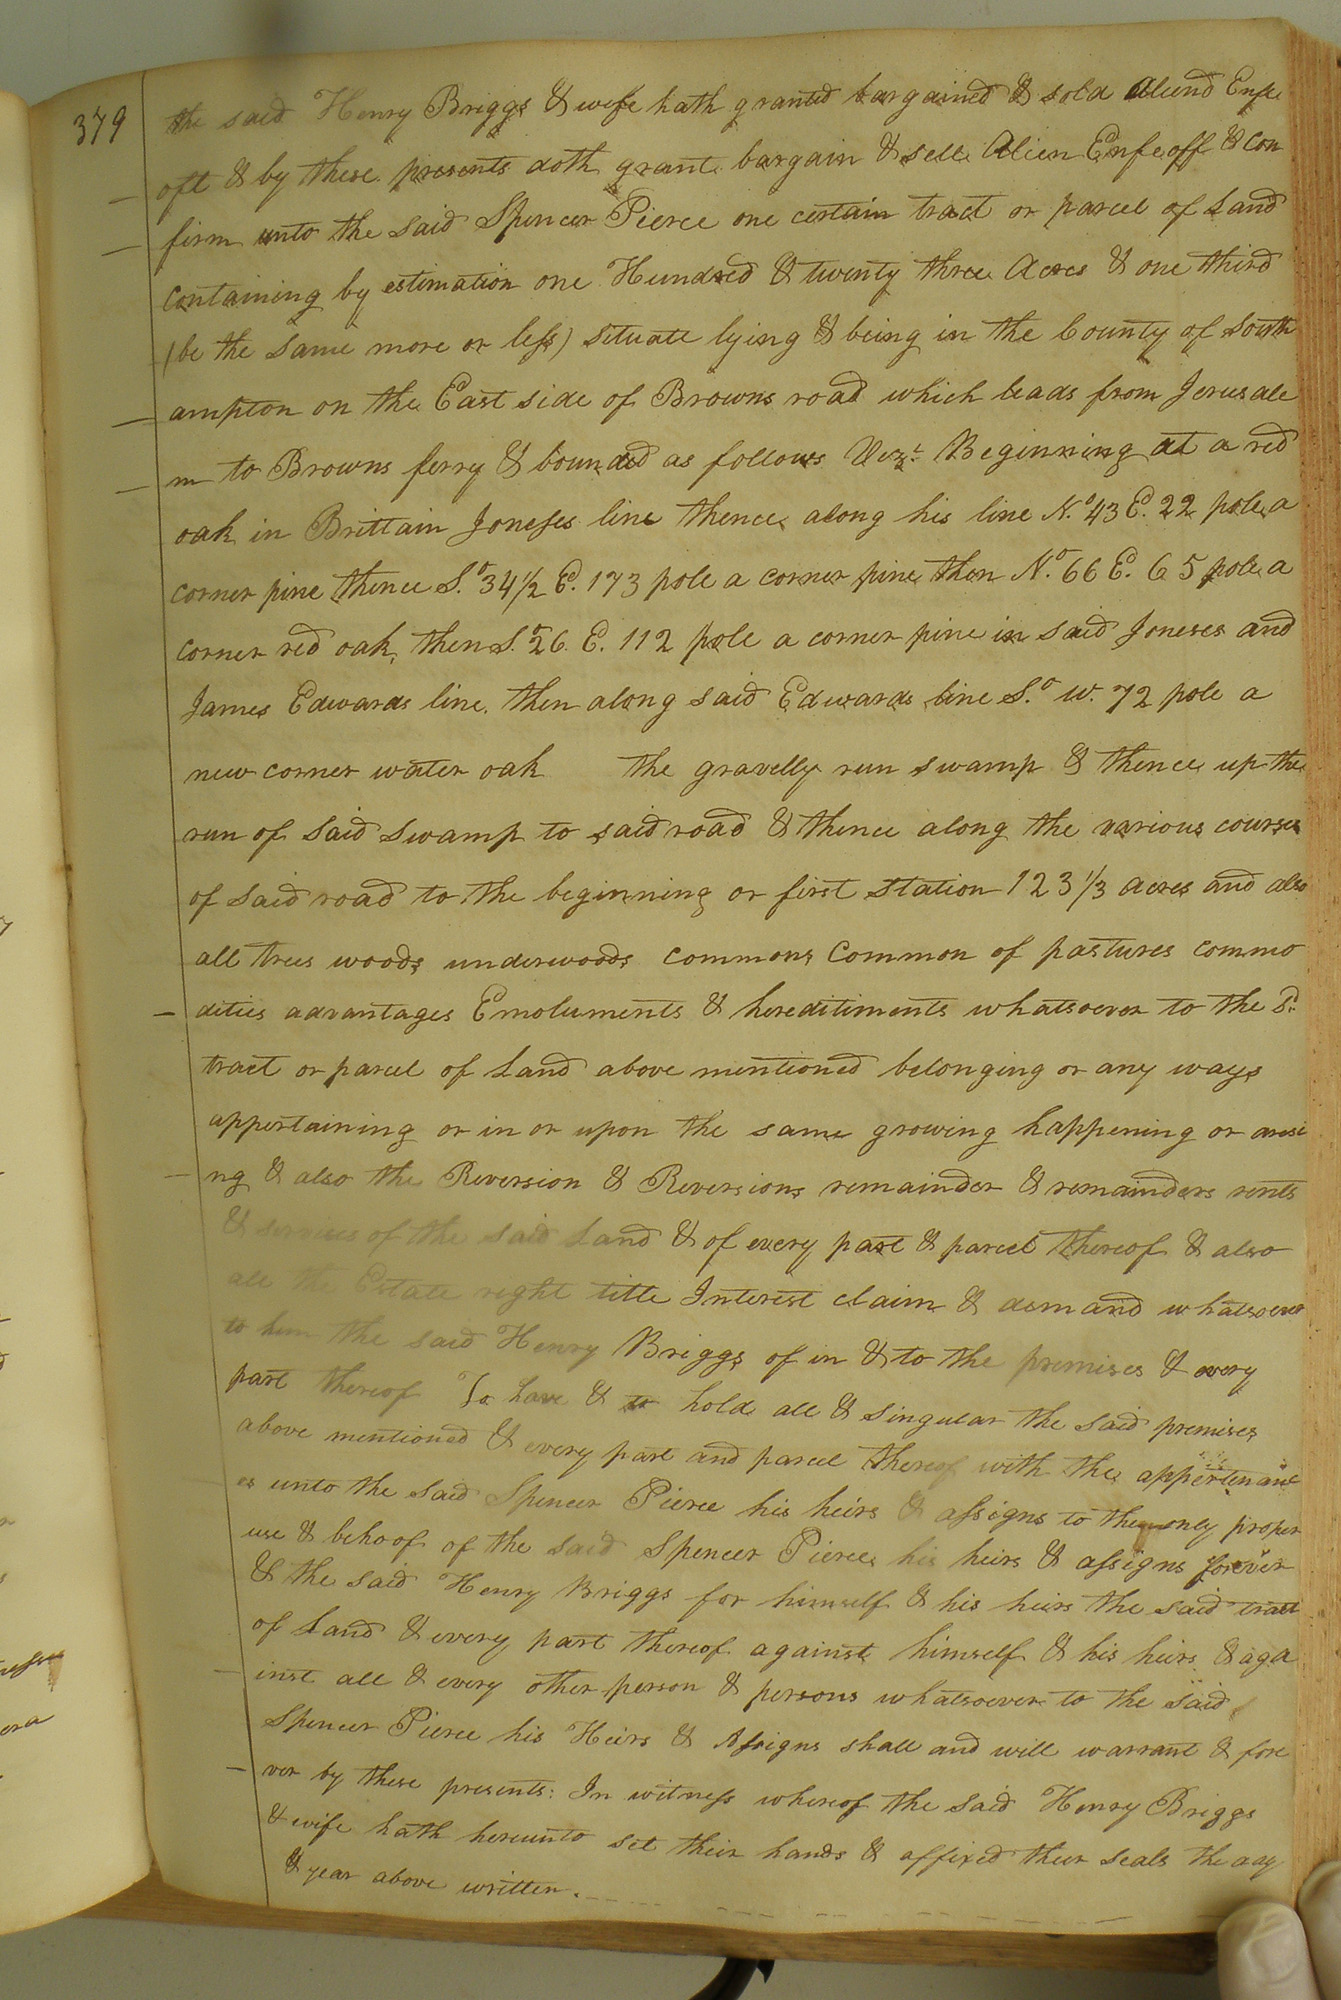 379
the said Henry Briggs & wife hath granted bargained & sold Aliend Enfe
oft & by these presents doth grant bargain & sell Alien Enfeoff & con
firm unto the said Spencer Pierce one certain tract or parcel of Land
containing by estimation one Hundred & twenty three Acres & one third
(be the same more or less) situate lying & being in the County of South
ampton on the East side of Browns road which leads from Jerusale
m to Browns ferry & bounded as follows Vizt. Beginning at a red
oak in Brittain Joneses line thence along his line No. 43 E. 22 pole a
corner pine thence So. 34 1/2 E. 173 pole a corner pine then No. 66 E. 65 pole a
corner red oak, then So. 26. E. 112 pole a corner pine in said Joneses and
James Edwards line. then along said Edwards line So. W. 72 pole a
new corner water oak the gravelly run swamp & thence up the
run of said swamp to said road & thence along the various courses
of said road to the beginning or first station 123 1/3 acres and also
all trees woods underwoods commons Common of pastures commo
dities advantages Emoluments & hereditiments whatsoever to the sd.
tract or parcel of Land above mentioned belonging or any ways
appertaining or in or upon the same growing happening or arisi
ng & also the Reversion & Reversions remainder & remainders rents
& services of the said Land & of every part & parcel thereof & also
all the Estate right title Interest claim & demand whatsoever
to him the said Henry Briggs of in & to the premises & every
part thereof To have & to hold all & singular the said premises
above mentioned & every part and parcel thereof with the appertenanc
es unto the said Spencer Pierce his heirs & assigns to the only proper
use & behoof of the said Spencer Pierce his heirs & assigns forever
& the said Henry Briggs for himself & his heirs the said tract
of Land & every part thereof against himself & his heirs & aga
inst all & every other person & persons whatsoever to the said
Spencer Pierce his Heirs & Assigns shall and will warrant & fore
ver by these presents: In witness whereof the said Henry Briggs
& wife hath hereunto set their hands & affixed their seals the day
& year above written.